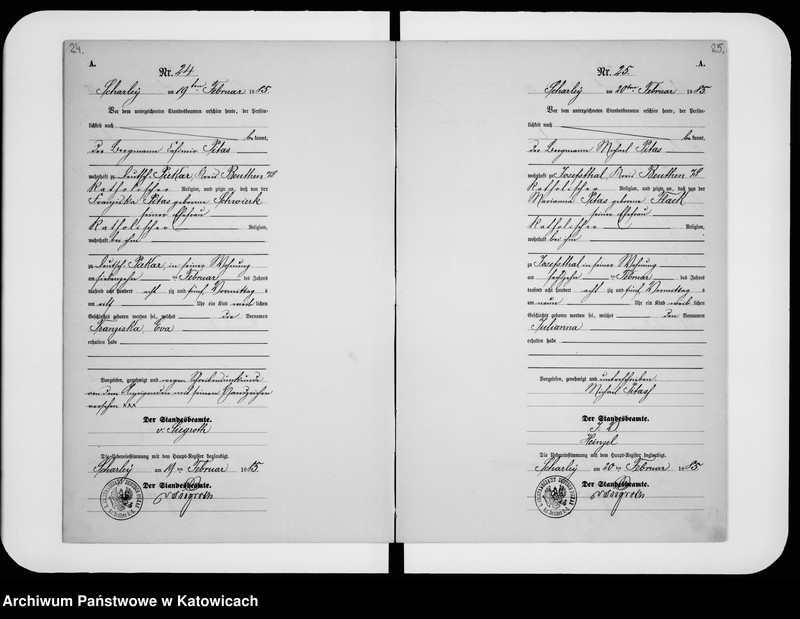 24.
A.
Nr. 24
Scharley am 19ten Februar 1885.
Vor dem unterzeichneten Standesbeamten erschien heute, der Persön-
lichkeit nach
be kannt,
der Bergmann Casimir Pitas
wohnhaft zu Deutsch Piekar, Kreis Beuthen
katholischer Religion, und zeigte an, daß von der
Franziska Pitas geborene Schwierk
seiner Ehefrau
katholischer Religion,
wohnhaft bei ihm
zu Deutsch Piekar, in seiner Wohnung
am siebenzehn ten Februar des Jahres
tausend acht hundert acht zig und fünf Vormittag s
um acht Uhr ein Kind weib lichen
Geschlechts geboren worden sei, welches die Vornamen
Franziska, Eva
erhalten habe
Vorgelesen, genehmigt und wegen Schreibensunkunde
von dem Anzeigenden mit seinem Handzeichen
versehen xxx
Der Standesbeamte.
v. Siegroth
Die Uebereinstimmung mit dem Haupt-Register beglaubigt.
Scharley am 19 ten Februar 1885.
Der Standesbeamte.
25.
A.
Nr. 25.
Scharley am 20ten Februar 1885
Vor dem unterzeichneten Standesbeamten erschien heute, der Persön-
lichkeit nach
be kannt,
der Bergmann Michael Pitas
wohnhaft zu Josefsthal, Kreis Beuthen
katholischer Religion, und zeigte an, daß von der
Marianna Pitas geborene Flack
seiner Ehefrau
katholischer Religion,
wohnhaft bei ihm
zu Josefsthal in seiner Wohnung
am sechzehn ten Februar des Jahres
tausend acht hundert acht zig und fünf Vormittag s
um neun Uhr ein Kind weib lichen
Geschlechts geboren worden sei, welches den Vornamen
Julianna
erhalten habe
Vorgelesen, genehmigt und unterschrieben.
Michael Pitasch
Der Standesbeamte.
J. V.
Heinzel
Die Uebereinstimmung mit dem Haupt-Register beglaubigt.
Scharley am 20 ten Februar 1885
Der Standesbeamte.
Archiwum Państwowe w Katowicach